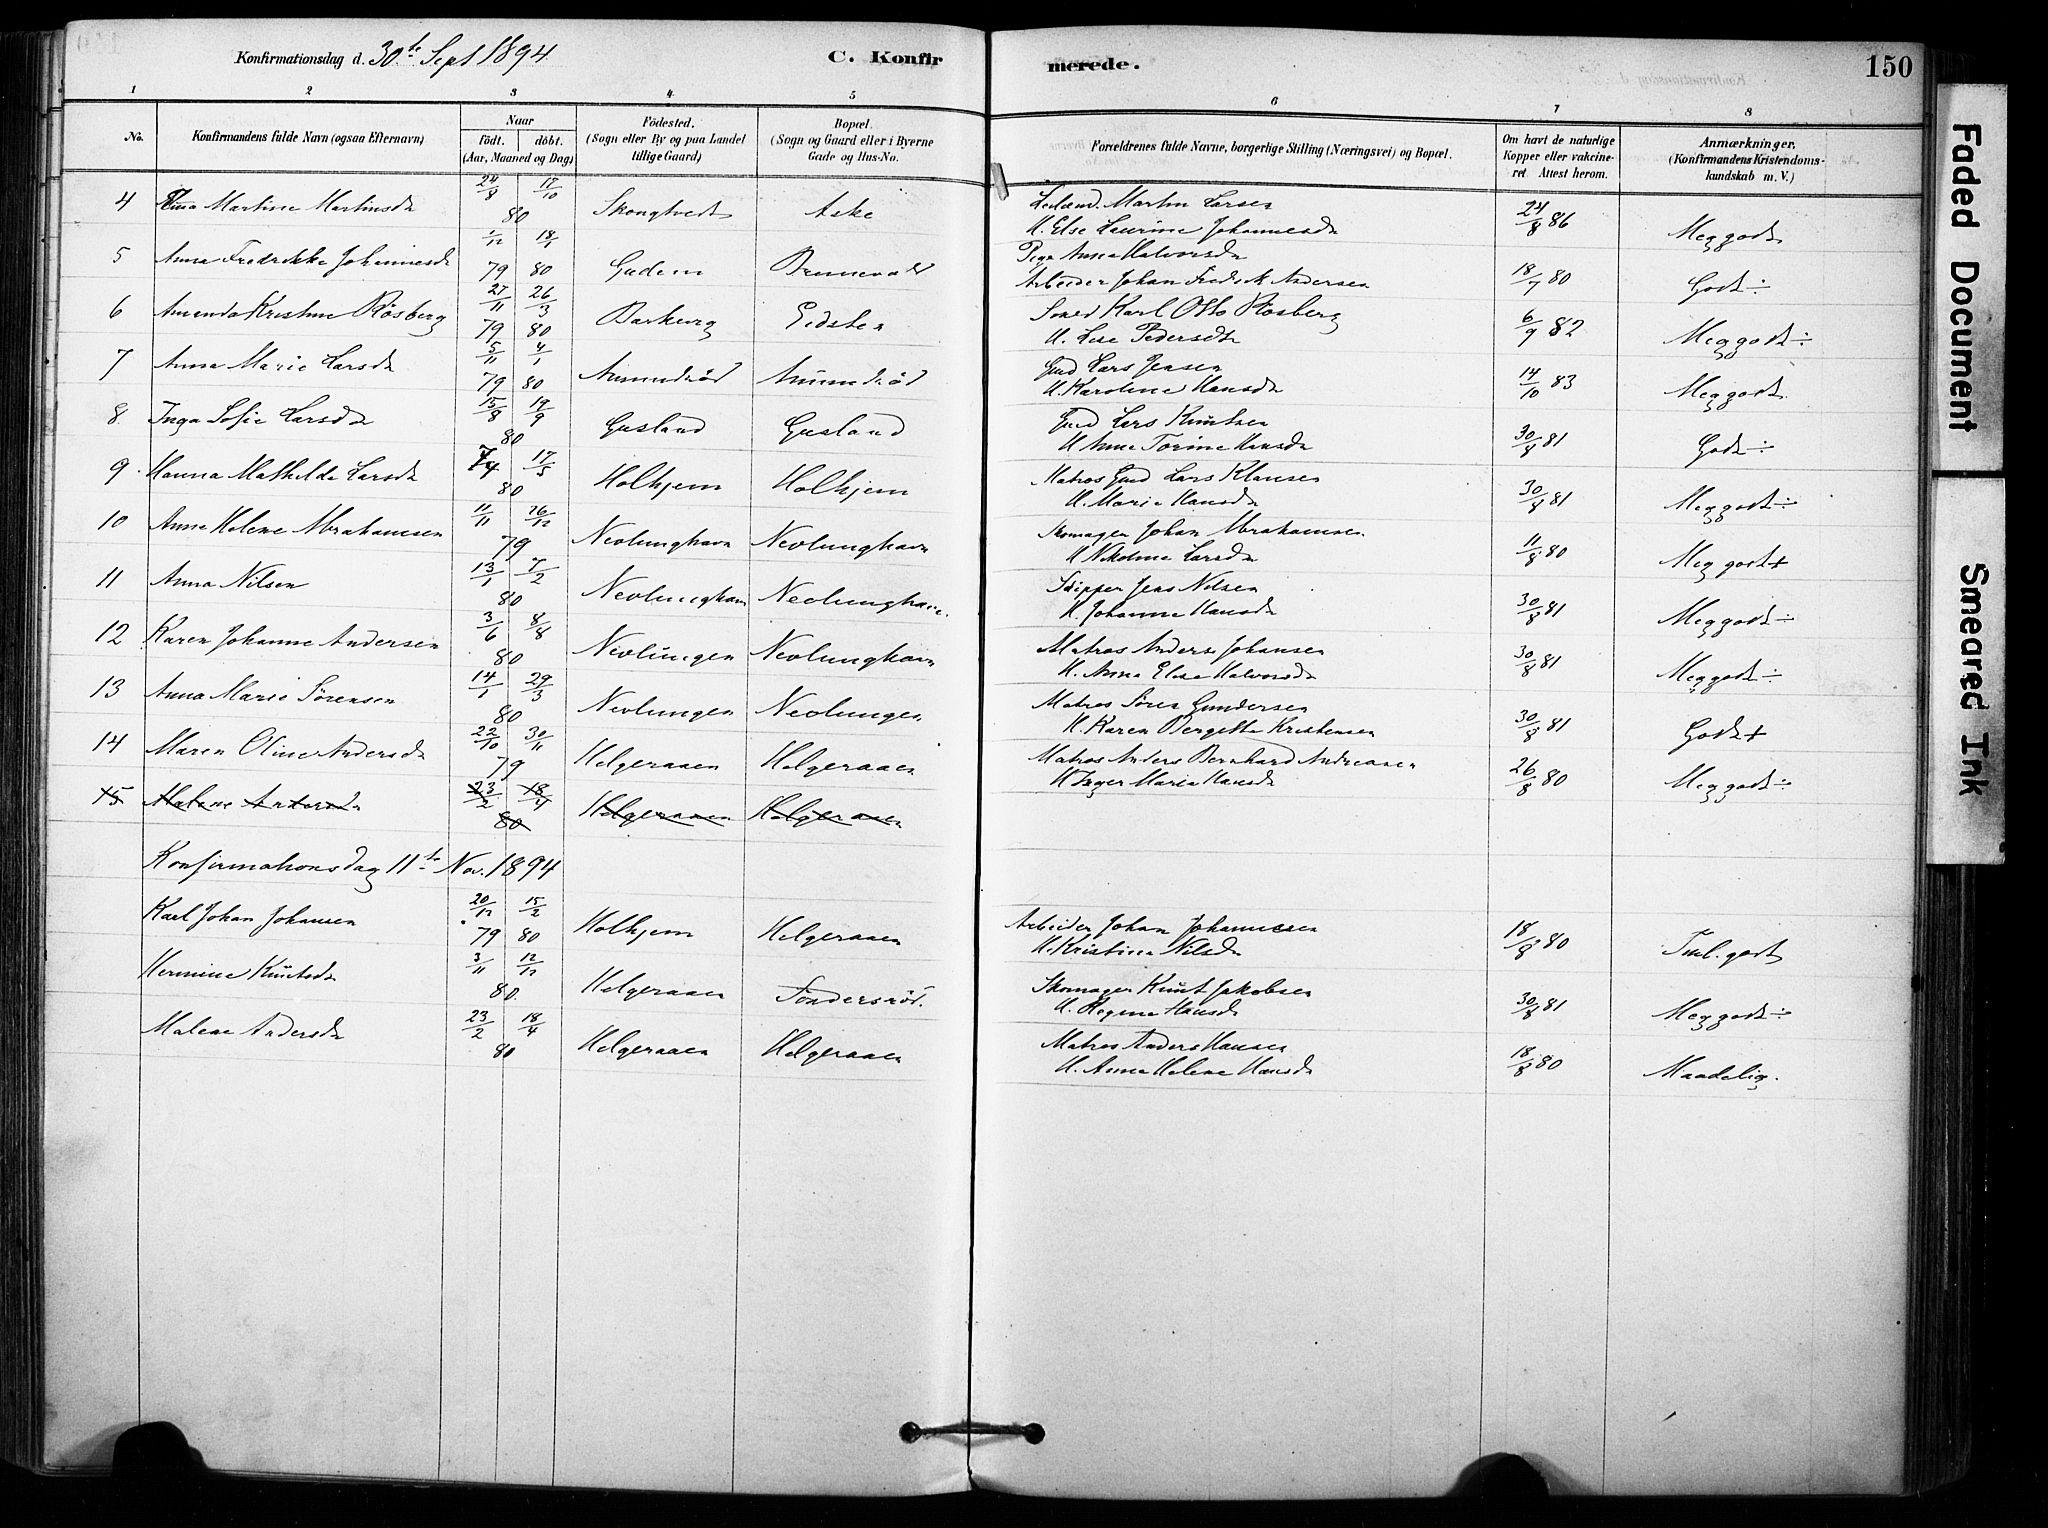 Konfirmationsdag d. 30te Sept 1894
C. Konfirmerede.
150
1 2 3 4. 5 6 7 8
No. Konfirmandens fulde Navn (ogsaa Efternavn) Naar Födt. döbt. (Aar, Maaned og Dag) Födested. (Sogn eller By og paa Landet tillige Gaard) Bopæl. (Sogn og Gaard eller i Byerne Gade og Hus-No. Forældrenes fulde Navne, borgerlige Stilling (Næringsvei) og Bopæl. Om havt de naturlige Kopper eller vakcineret. Attest herom. Anmærkninger. (Konfirmandens Kristendomskundskab m. V.)
4 Martine Martinsdr 24/8 17/10 80 Skongtvedt Aske Martin Larsen
H. Else Laurine Johannesdr 24/8 86 Meg godt
5 Anna Fredrikke Johannesdr 1/12 79 18/1 80 Gudem Pige Anna Halvorsdr
Arbeider Johan Fredrik Andersen 18/7 80 Godt ÷
6 Amanda Kristine Rösberg 27/11 79 26/3 80 Barkevig Eidsten Karl Otto Rösberg
H. Lise Pedersdr 6/9 82 Meg godt ÷
7 Anna Marie Larsdr 5/11 79 4/1 80 Anundröd Anundröd Gmd Lars Jensen
H. Karoline Hansdr 14/10 83 Meg godt.
8 Inga Sofie Larsdr 15/8 19/9 80 Gusland Gusland Gmd Lars Knutsen
H Anne Torine Hansdr 30/8 81 Godt ÷
9. Hanna Mathilde Larsdr 7/4 17/5 80 Holhjem Holhjem Matros Gmd Lars Klausen
H. Marie Hansdr 30/8 81 Meg godt ÷
10 Anne Helene Abrahamsen 11/11 26/12 79 Nevlunghavn Nevlunghavn Skomager Johan Abrahamsen
H Nikoline Larsdr 11/8 80 Meg godt +
11 Anna Nilsen 13/1 7/2 80 Nevlunghavn Nevlunghavn. Skipper Jens Nilsen
H. Johanne Hansdr 30/8 81 Meg godt ÷
12 Karen Johanne Andersen 3/6 8/8 80 Nevlungen Nevlunghavn Matros Anders Johansen
H. Anna Elise Halvorsdr 30/8 81 Meg godt ÷
13 Anna Marie Sörensen 14/1 29/3 80 Nevlungen Nevlungen Matros Sören Gundersen
H. Karen Bergitte Kristensen 30/8 81 Godt +
14 Maren Oline Andersdr 22/10 30/11 79 Helgeraaen Helgeraaen Matros Anders Bernhard Andreasen
H Inger Marie Hansdr 26/8 80 Meg godt ÷
15 Malene Andersdr 23/2 18/4 80 Helgeraaen Helgeraaen
Konfirmationsdag 11te Nov. 1894
Karl Johan Johansen 20/12 79 15/2 80 Holhjem Helgeraaen Arbeider Johan Johannesen
H. Kristine Nilsdr 18/8 80 Tml. godt
Hermine Knutsdr 3/11 12/12 80. Helgeraaen Töndersröd. Skomager Knut Jakobsen
H. Regine Hansdr 30/8 81 Meg godt ÷
Malene Andersdr 23/2 18/4 80 Helgeraaen Helgeraaen Matros Anders Hansen
H. Anne Helene Hansdr 18/8 80 Maadelig.
Faded Document
Smeared Ink